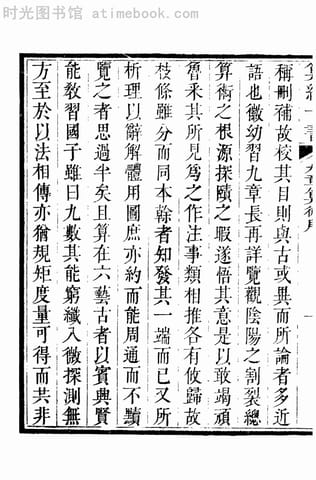 时光图书馆 - atimebook.com
稱刪補故校其目則與古或異而所論者多近
語也徽幼習九章長再詳覽觀陰陽之割裂總
算術之根源探賾之暇遂悟其意是以敢竭頑
魯采其所見爲之作注事類相推各有攸歸故
枝條雖分而同本幹者知發其一端而已又所
析理以辭解體用圖庶亦約而能周通而不黷
覽之者思過半矣且算在六藝古者以賓興賢
能教習國子雖曰九數其能窮纖入微探測無
方至於以法相傳亦猶規矩度量可得而共非